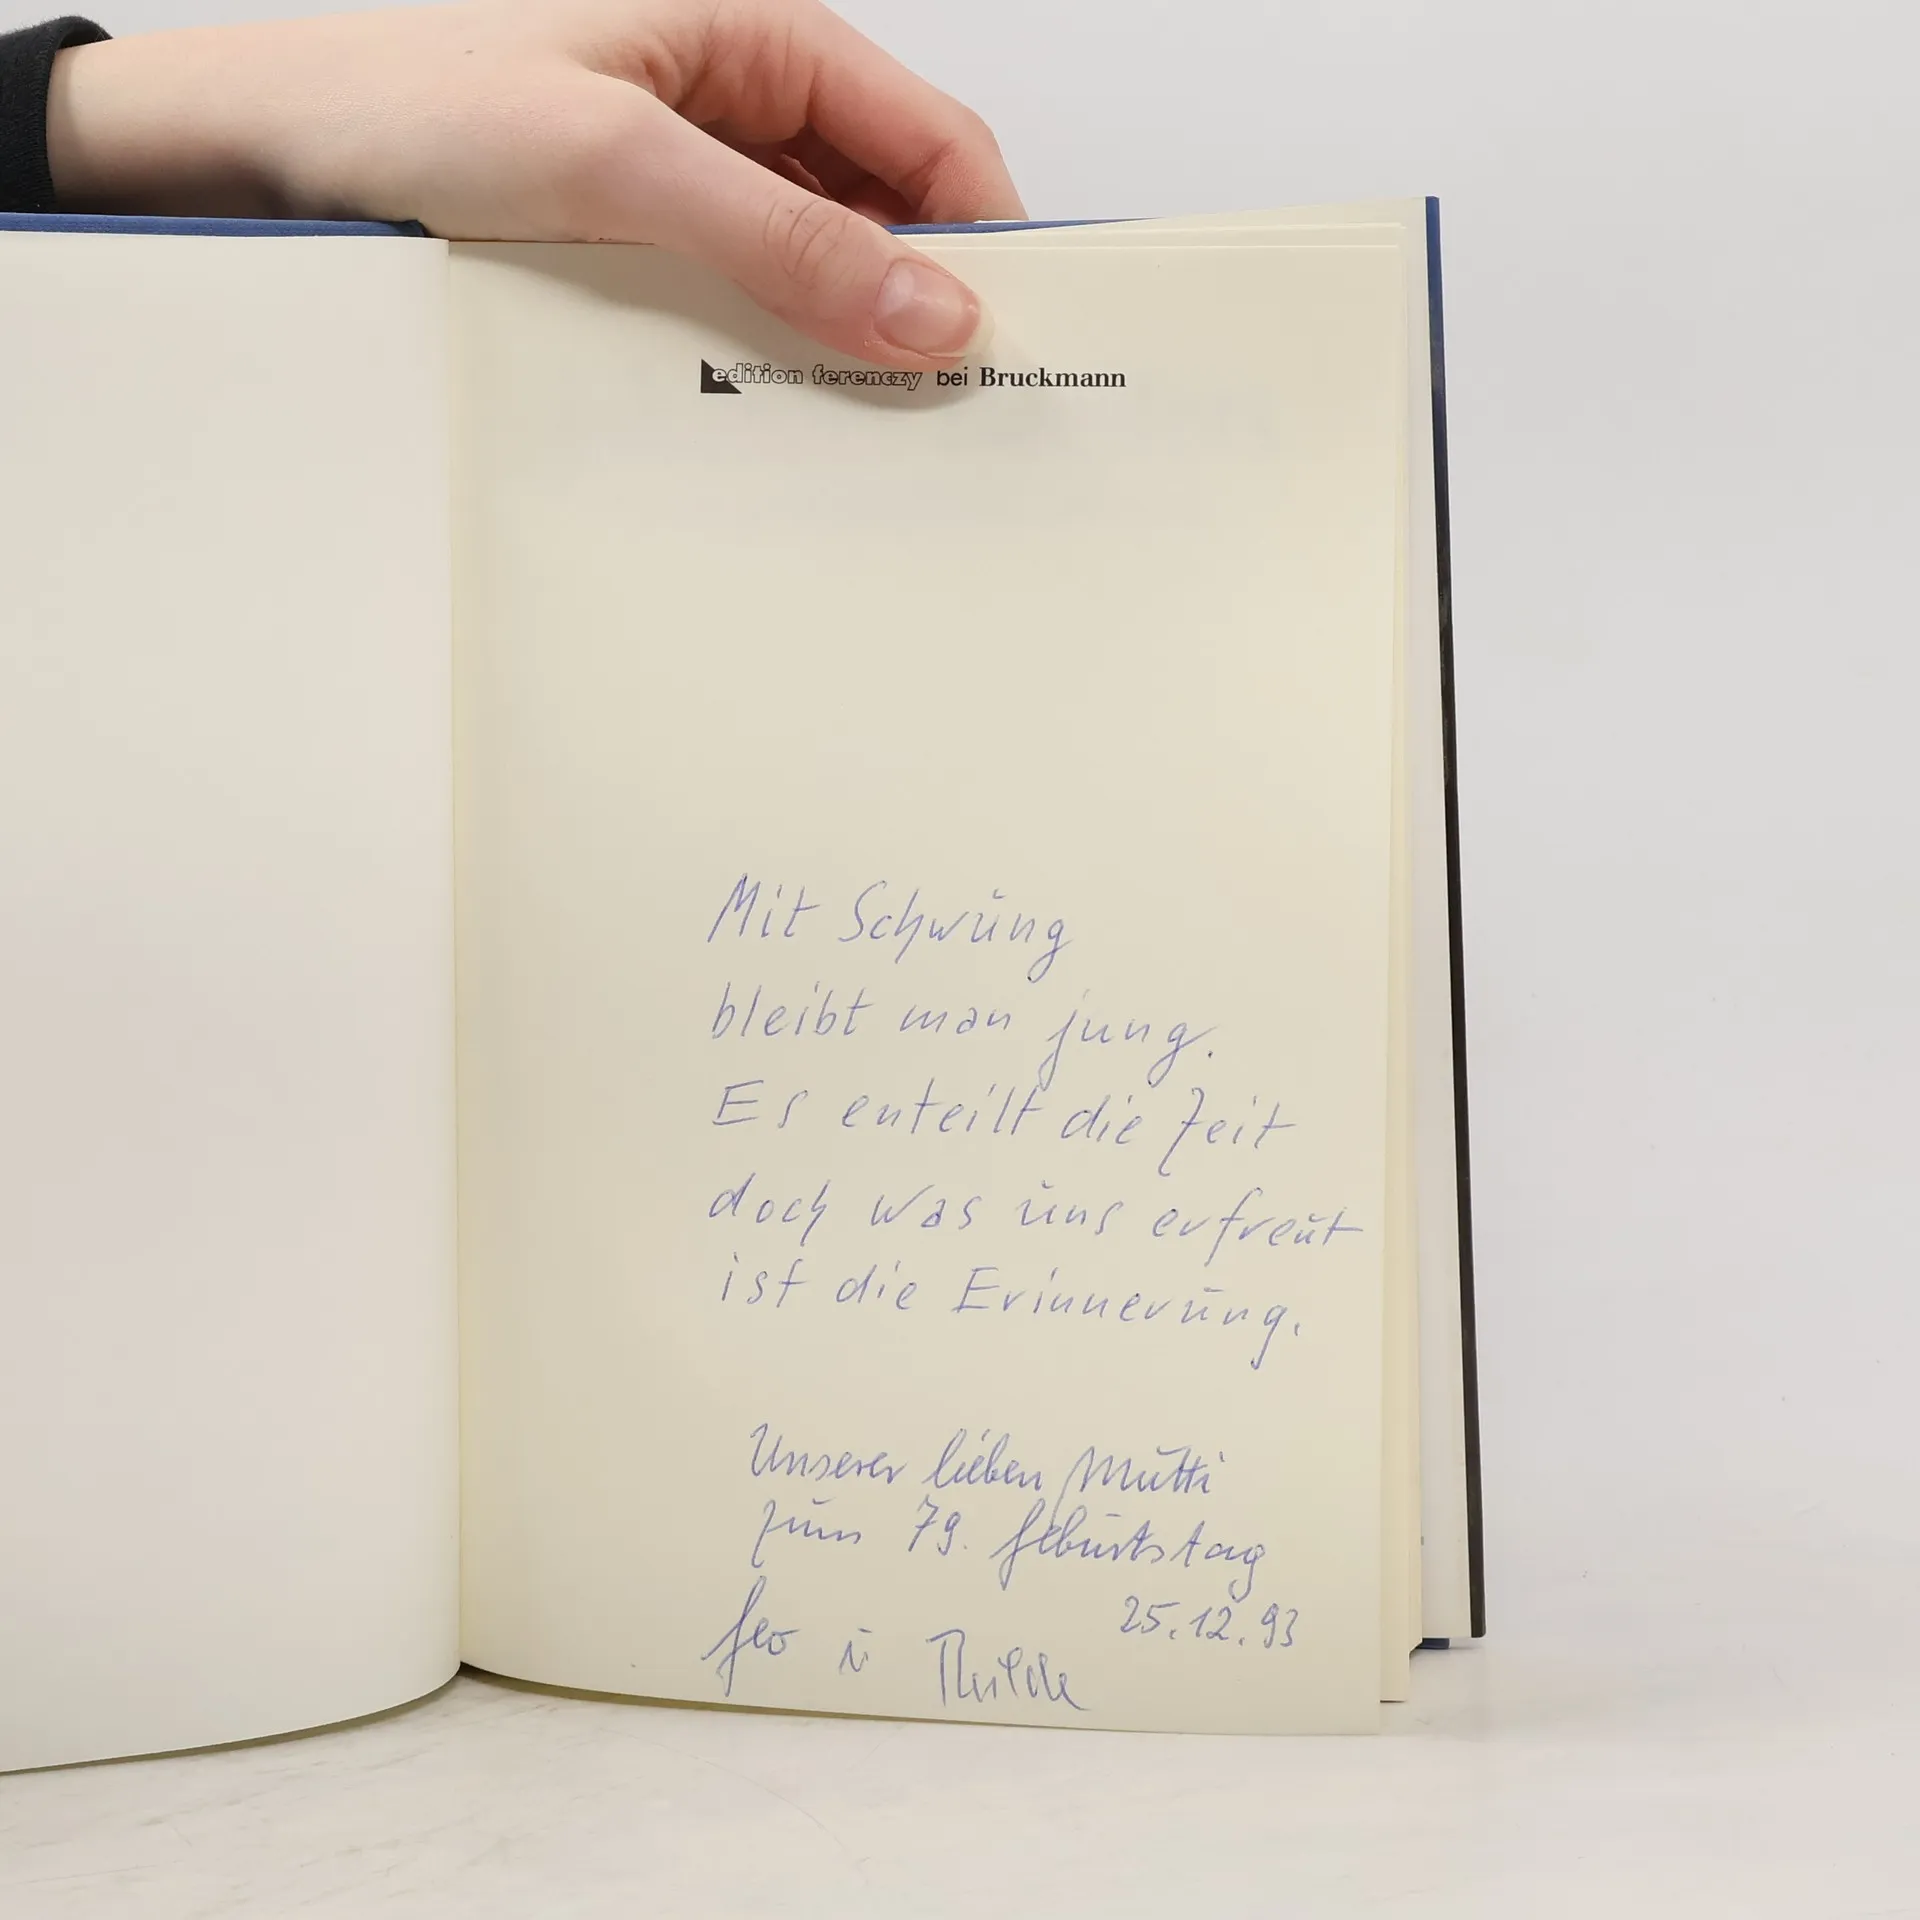 edition ferenczy bei Bruckmann
Mit Schwung
bleibt man jung.
Es enteilt die Zeit
doch was uns erfreut
ist die Erinnerung.
Unserer lieben Mutti
zum 79. Geburtstag
25.12.93
Geo u Thilde